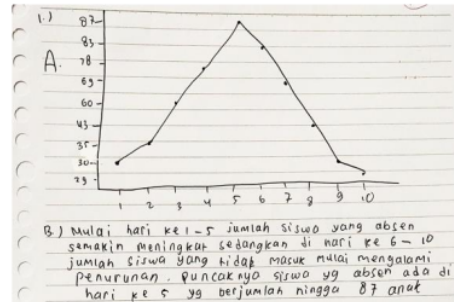 1.)
A.
87
83
78
69
60
43
35
30
29
1 2 3 4 5 6 7 8 9 10
B) Mulai hari ke 1-5 jumlah siswa yang absen
semakin meningkat sedangkan di hari ke 6-10
jumlah siswa yang tidak masuk mulai mengalami
penurunan. Puncaknya siswa yg absen ada di
hari ke 5 yg berjumlah hingga 87 anak